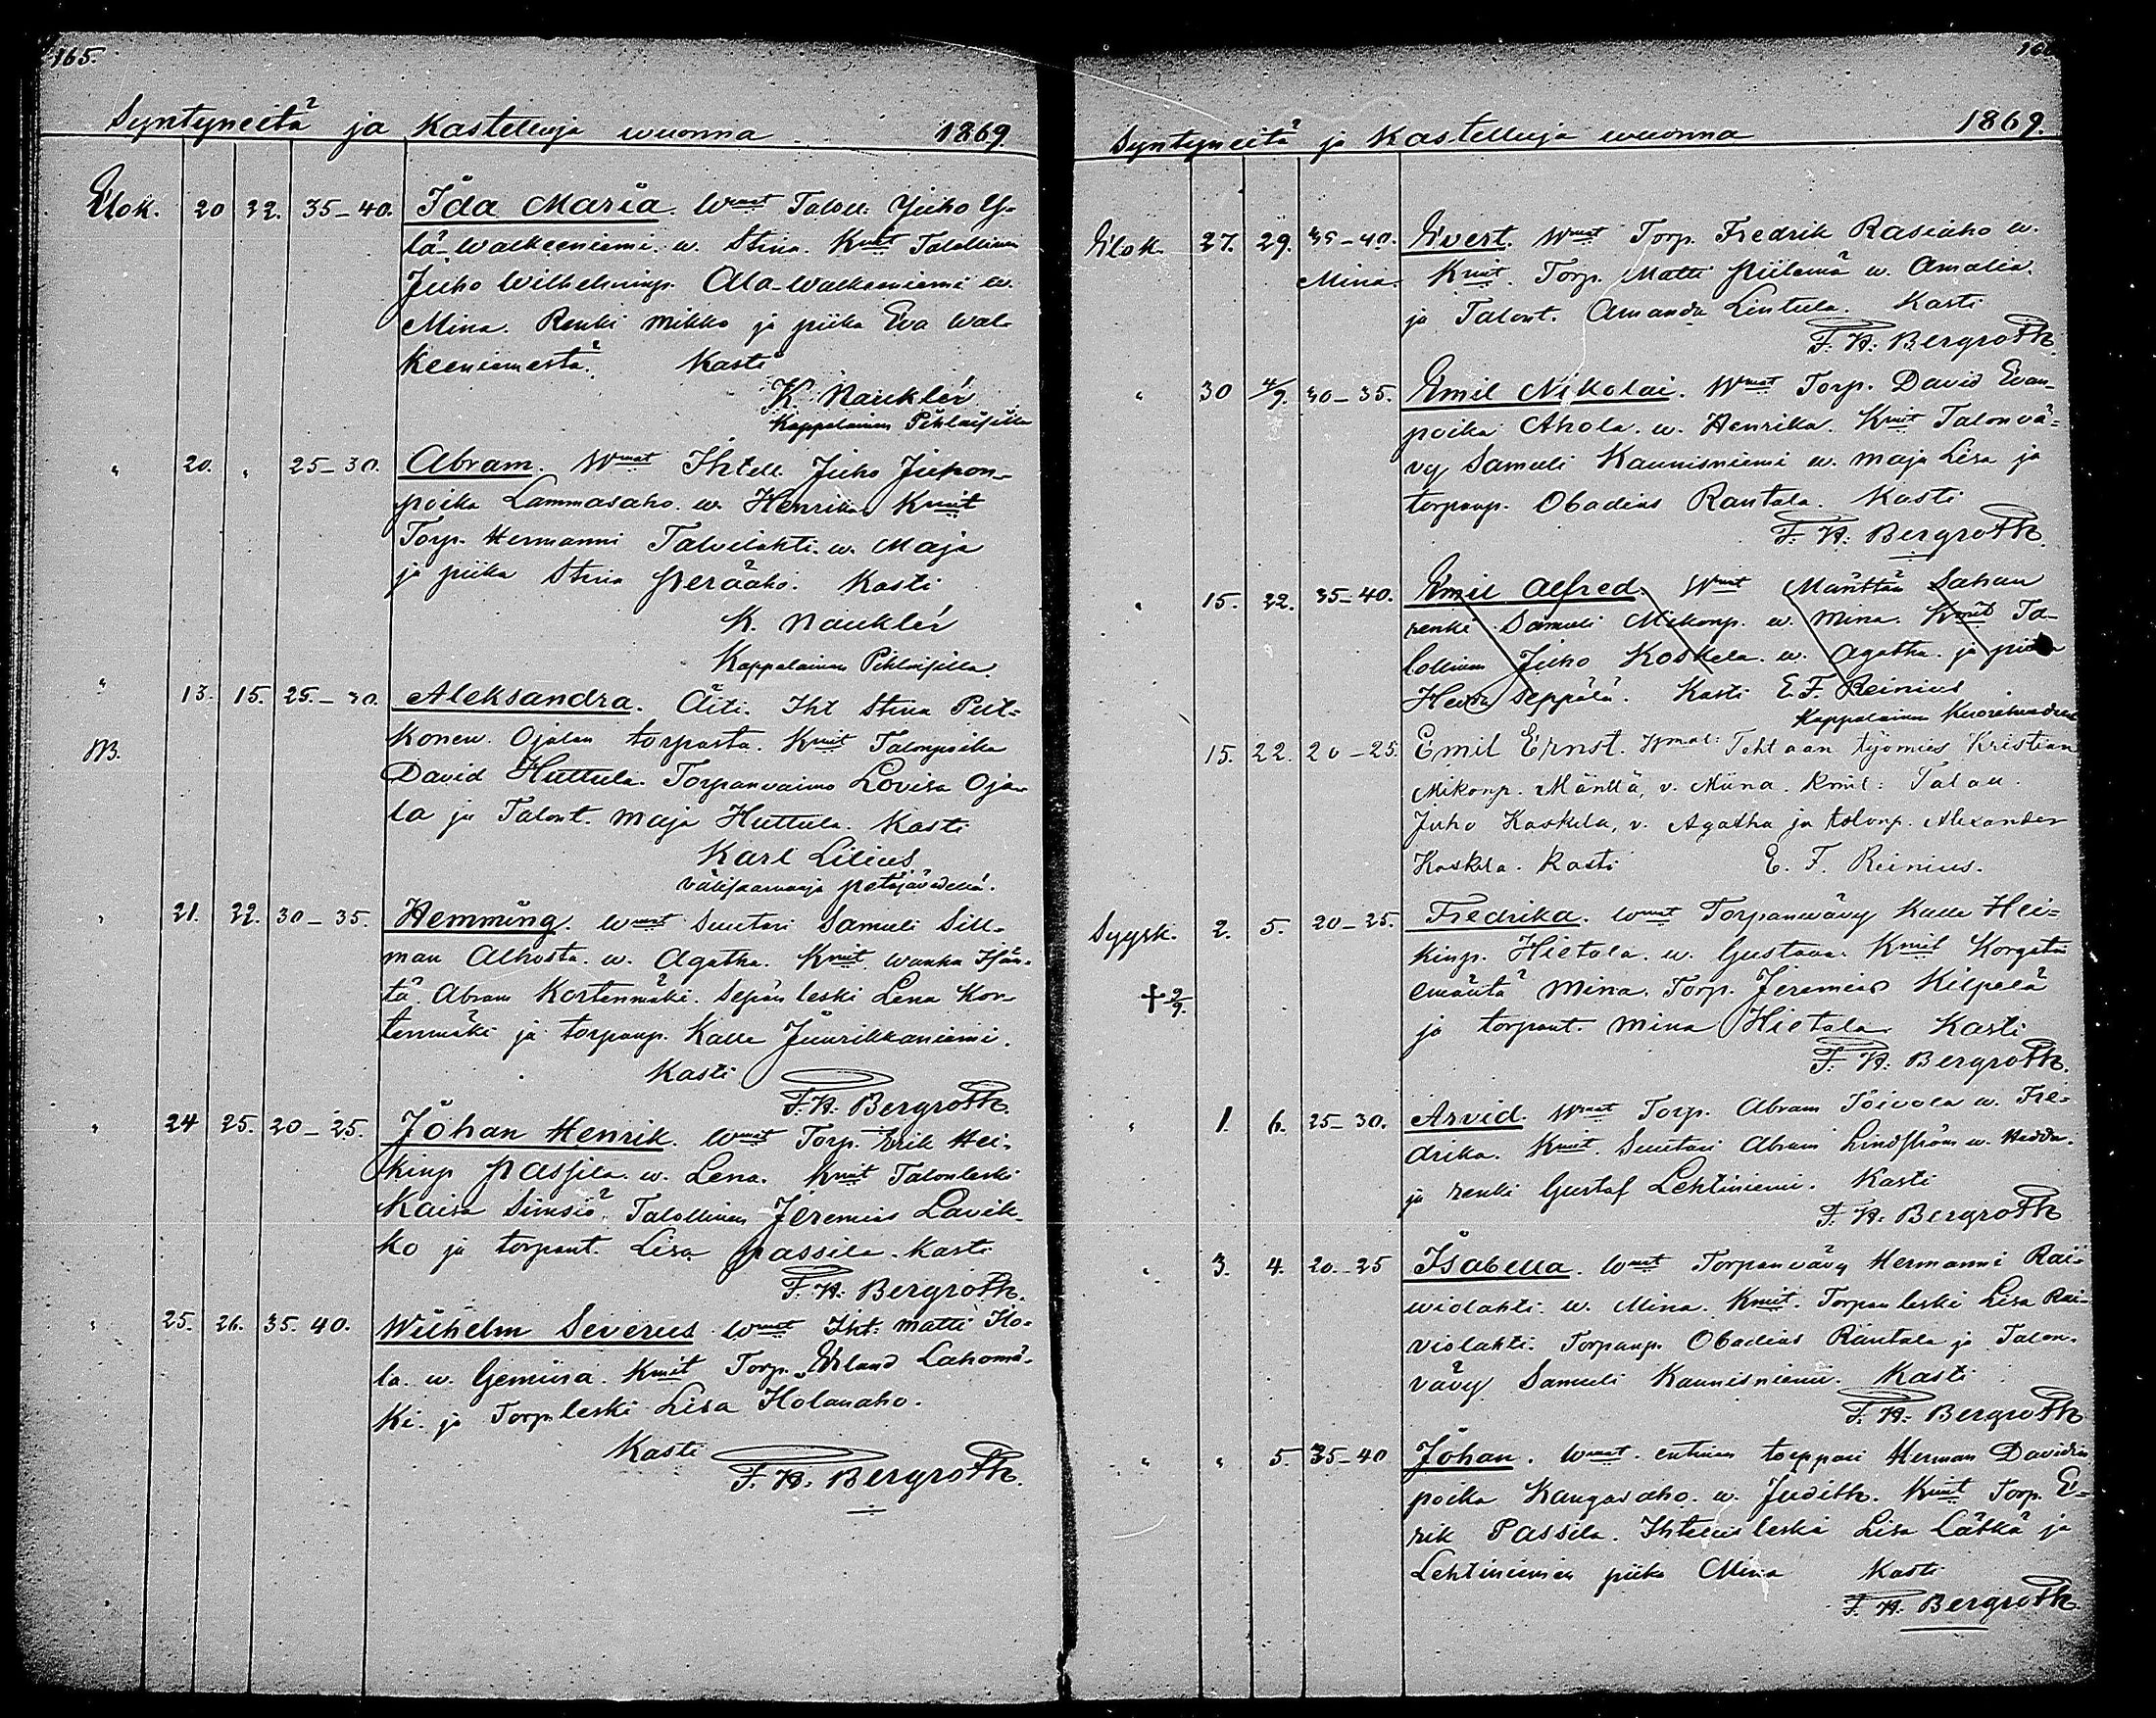 165.
Syntyneitä ja Kastettuja wuonna 1869.
Elok. 20 22. 35-40. Ida Maria. Wmat Taloll. Juho Y-
lä-Walkeeniemi. w. Stina. Kmit Talollinen
Juho Wilhelminp. Ala-Walkeeniemi w.
Mina. Renki Mikko ja piika Eva Wal-
keeniemestä. Kasti
K. Nauklér
Kappalainen Pihlaisilla
" 20. " 25-30. Abram. Wmat Ihtell. Juho Juhon-
poika Lammasaho. w. Henrika. Kmit
Torp. Hermanni Talvilahti. w. Maja
ja piika Stina Peraäho. Kasti
K. Nauklér
Kappalainen Pihlaisilla.
" 13. 15. 25.-30. Aleksandra. Äiti. Iht Stina Piit-
konen. Ojalan torpasta. Kmit Talonpoika
David Huttula. Torpanvaimo Lovisa Oja-
la ja Talont. Maja Huttula. Kasti
Karl Lilius
välisaarnaaja Petäjävedellä.
" 21. 22. 30-35. Hemming. Wmat Suutari Samuli Sill-
man Alhosta. w. Agatha. Kmit. Wanha Isän-
tä. Abram Kortenmäki. Sepän leski Lena Kor-
tenmäki ja torpanp. Kalle Juurikkaniemi.
Kasti
F. H. Bergroth.
" 24 25. 20-25. Johan Henrik. Wmat Torp. Erik Hei-
kinp Passila. w. Lena. Kmit Talonleski
Kaisa Simsiö. Talollinen Jeremias Lavik-
ko ja torpant. Lisa Passila. Kasti
F. H. Bergroth.
" 25. 26. 35. 40. Wilhelm Severus Wmat Iht: Matti Ho-
la. w. Gemiina. Kmit Torp. Erland Lahomä-
ki. ja Torp. leski Lisa Holanaho.
Kasti
F. H. Bergroth.
Syntyneitä ja Kastettuja wuonna 1869.
Elok. 27. 29. 35-40. Evert. Wmat Torp. Fredrik Rasiaho w.
Mina. Kmit. Torp. Matti Piilemä w. Amalia.
ja Talont. Amanda Lintula. Kasti
F. H. Bergroth.
" 30 4/9. 30-35. Emil Nikolai. Wmat Torp. David Evan-
poika Ahola. w. Henrika. Kmit Talonvä-
vy Samuli Kaunisniemi w. Maja Lisa ja
torpanp. Obadias Rantala. Kasti
F. H. Bergroth.
" 15. 22. 35-40. Emil Alfred. Wmat Mänttän Sahan
renki Samuli Mikonp. w. Mina. Kmit Ta-
lollinen Juho Koskela. w. Agatha. ja piika
Seppälä. Kasti E. F. Reinius
Kappalainen
15. 22. 20-25. Emil Ernst. Wmat: Tehtaan työmies Kristian
Mikonp. Mänttä, v. Miina. Kmit: Talall.
Juho Koskela, v. Agatha ja talonp. Alexander
Koskela. Kasti E. F. Reinius.
Syysk. 2. 5. 20-25. Fredrika. Wmat Torpanvävy Kalle Hei-
kinp. Hietala. w. Gustava. Kmit Korgatin
† 9/9. emäntä Mina. Torp. Jeremias Kilpelä
ja torpant. Mina Hietala. Kasti
F. H. Bergroth.
" 1. 6. 25-30. Arvid. Wmat Torp. Abram Toivola w. Fre-
drika. Kmit. Suutari Abram Lindström w. Hedda.
ja renki Gustaf Lehtiniemi. Kasti
F. H. Bergroth
" 3. 4. 20-25 Isabella. Wmat Torpanvävy Hermanni Rai-
wiolahti. w. Mina. Kmit. Torpan leski Lisa Rai-
violahti. Torpanp. Obadias Rantala ja Talon-
vävy Samuli Kaunisniemi. Kasti
F. H. Bergroth
" " 5. 35-40 Johan. Wmat. entinen torppari Herman Davidin
poika Kangasaho. w. Judith. Kmit Torp. E-
rik Passila. Ihtellis leski Lisa Lätkä ja
Lehtiniemen piika Mina Kasti
F. H. Bergroth.